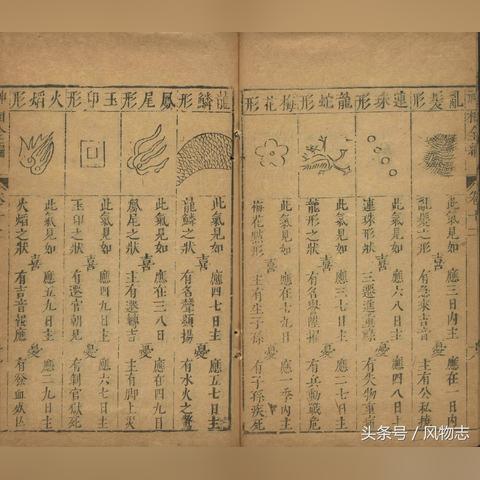 亂髮形
此氣見如
亂髮之形
喜
應三日內主
有急來吉音
憂
應在一日內
主有公私
連珠形
此氣見如
連珠形狀
應六八日主
三遷進
應四八日主
有失物重病
龍蛇形
此氣見如
龍形之狀
喜
應三七日主
有名譽
憂
應二七日主
有兵動職危
梅花形
此氣見如
梅花點形
應在七九日
主有生子孫
應一季內主
有子孫疾死
龍鱗形
此氣見如
龍鱗之狀
喜
應四七日主
有名聲顯揚
憂
應五七日主
有水火之
鳳尾形
此氣見如
鳳尾之狀
應在三八日
主有遷轉吉
應在四九日
主有脚上災
玉印形
此氣見如
玉印之狀
喜
應四九日主
有遷官朝見
憂
應六七日主
有制官獄死
火焰形
此氣見如
火焰之狀
喜
應五九日主
有吉音報應
憂
應二九日主
有發血
头条号／风物志